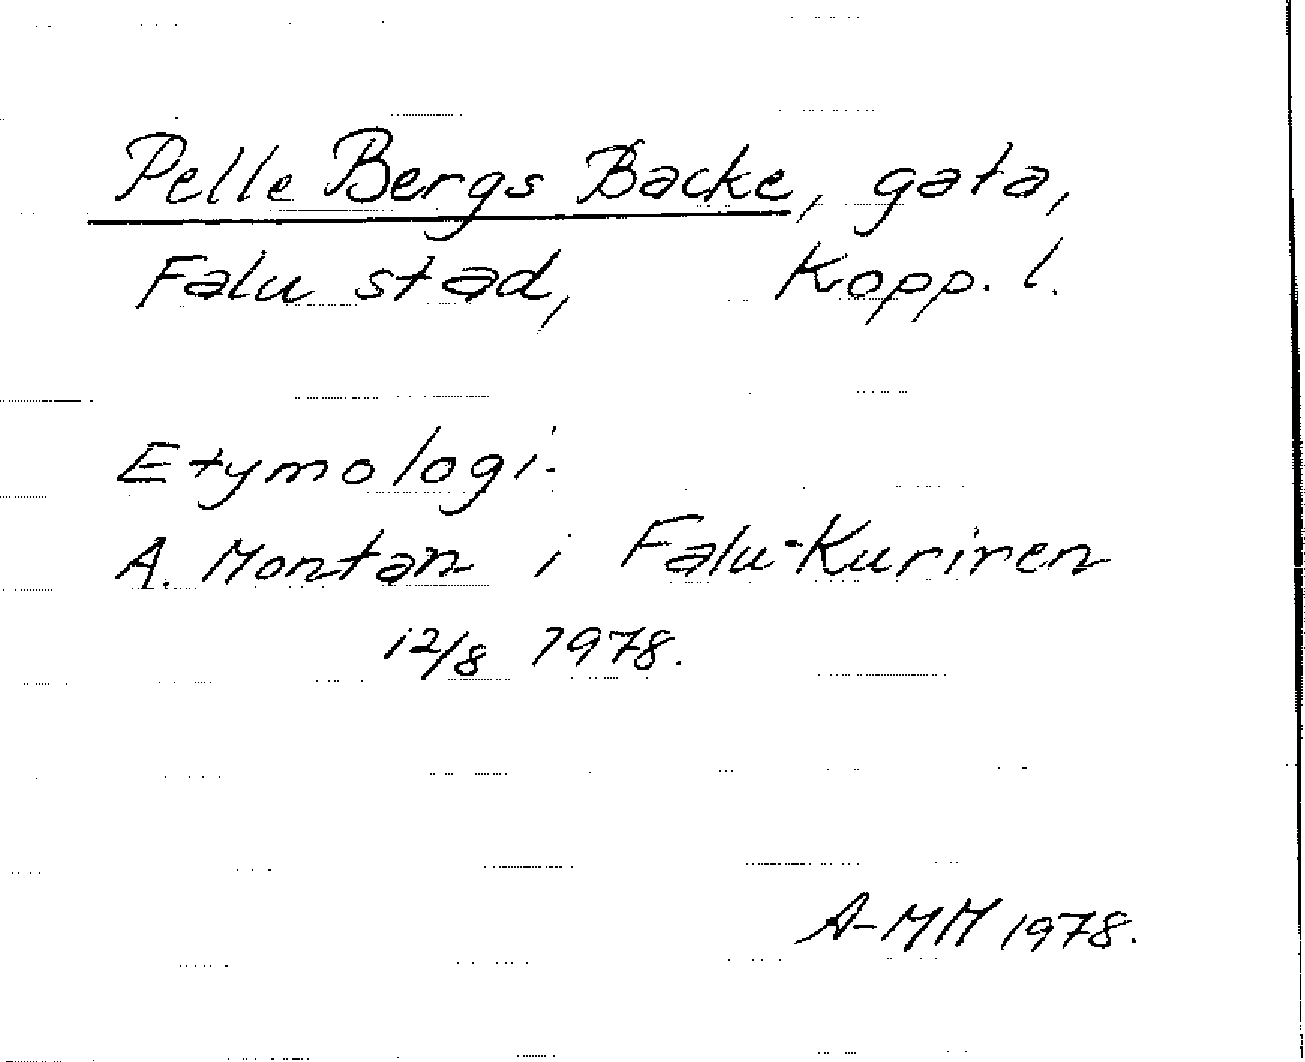 Pelle Bergs Backe, gata,
Falu stad, Kopp. l.
Etymologi.
A. Montan i Falu-Kuriren
12/8 1978.
A-MM 1978.